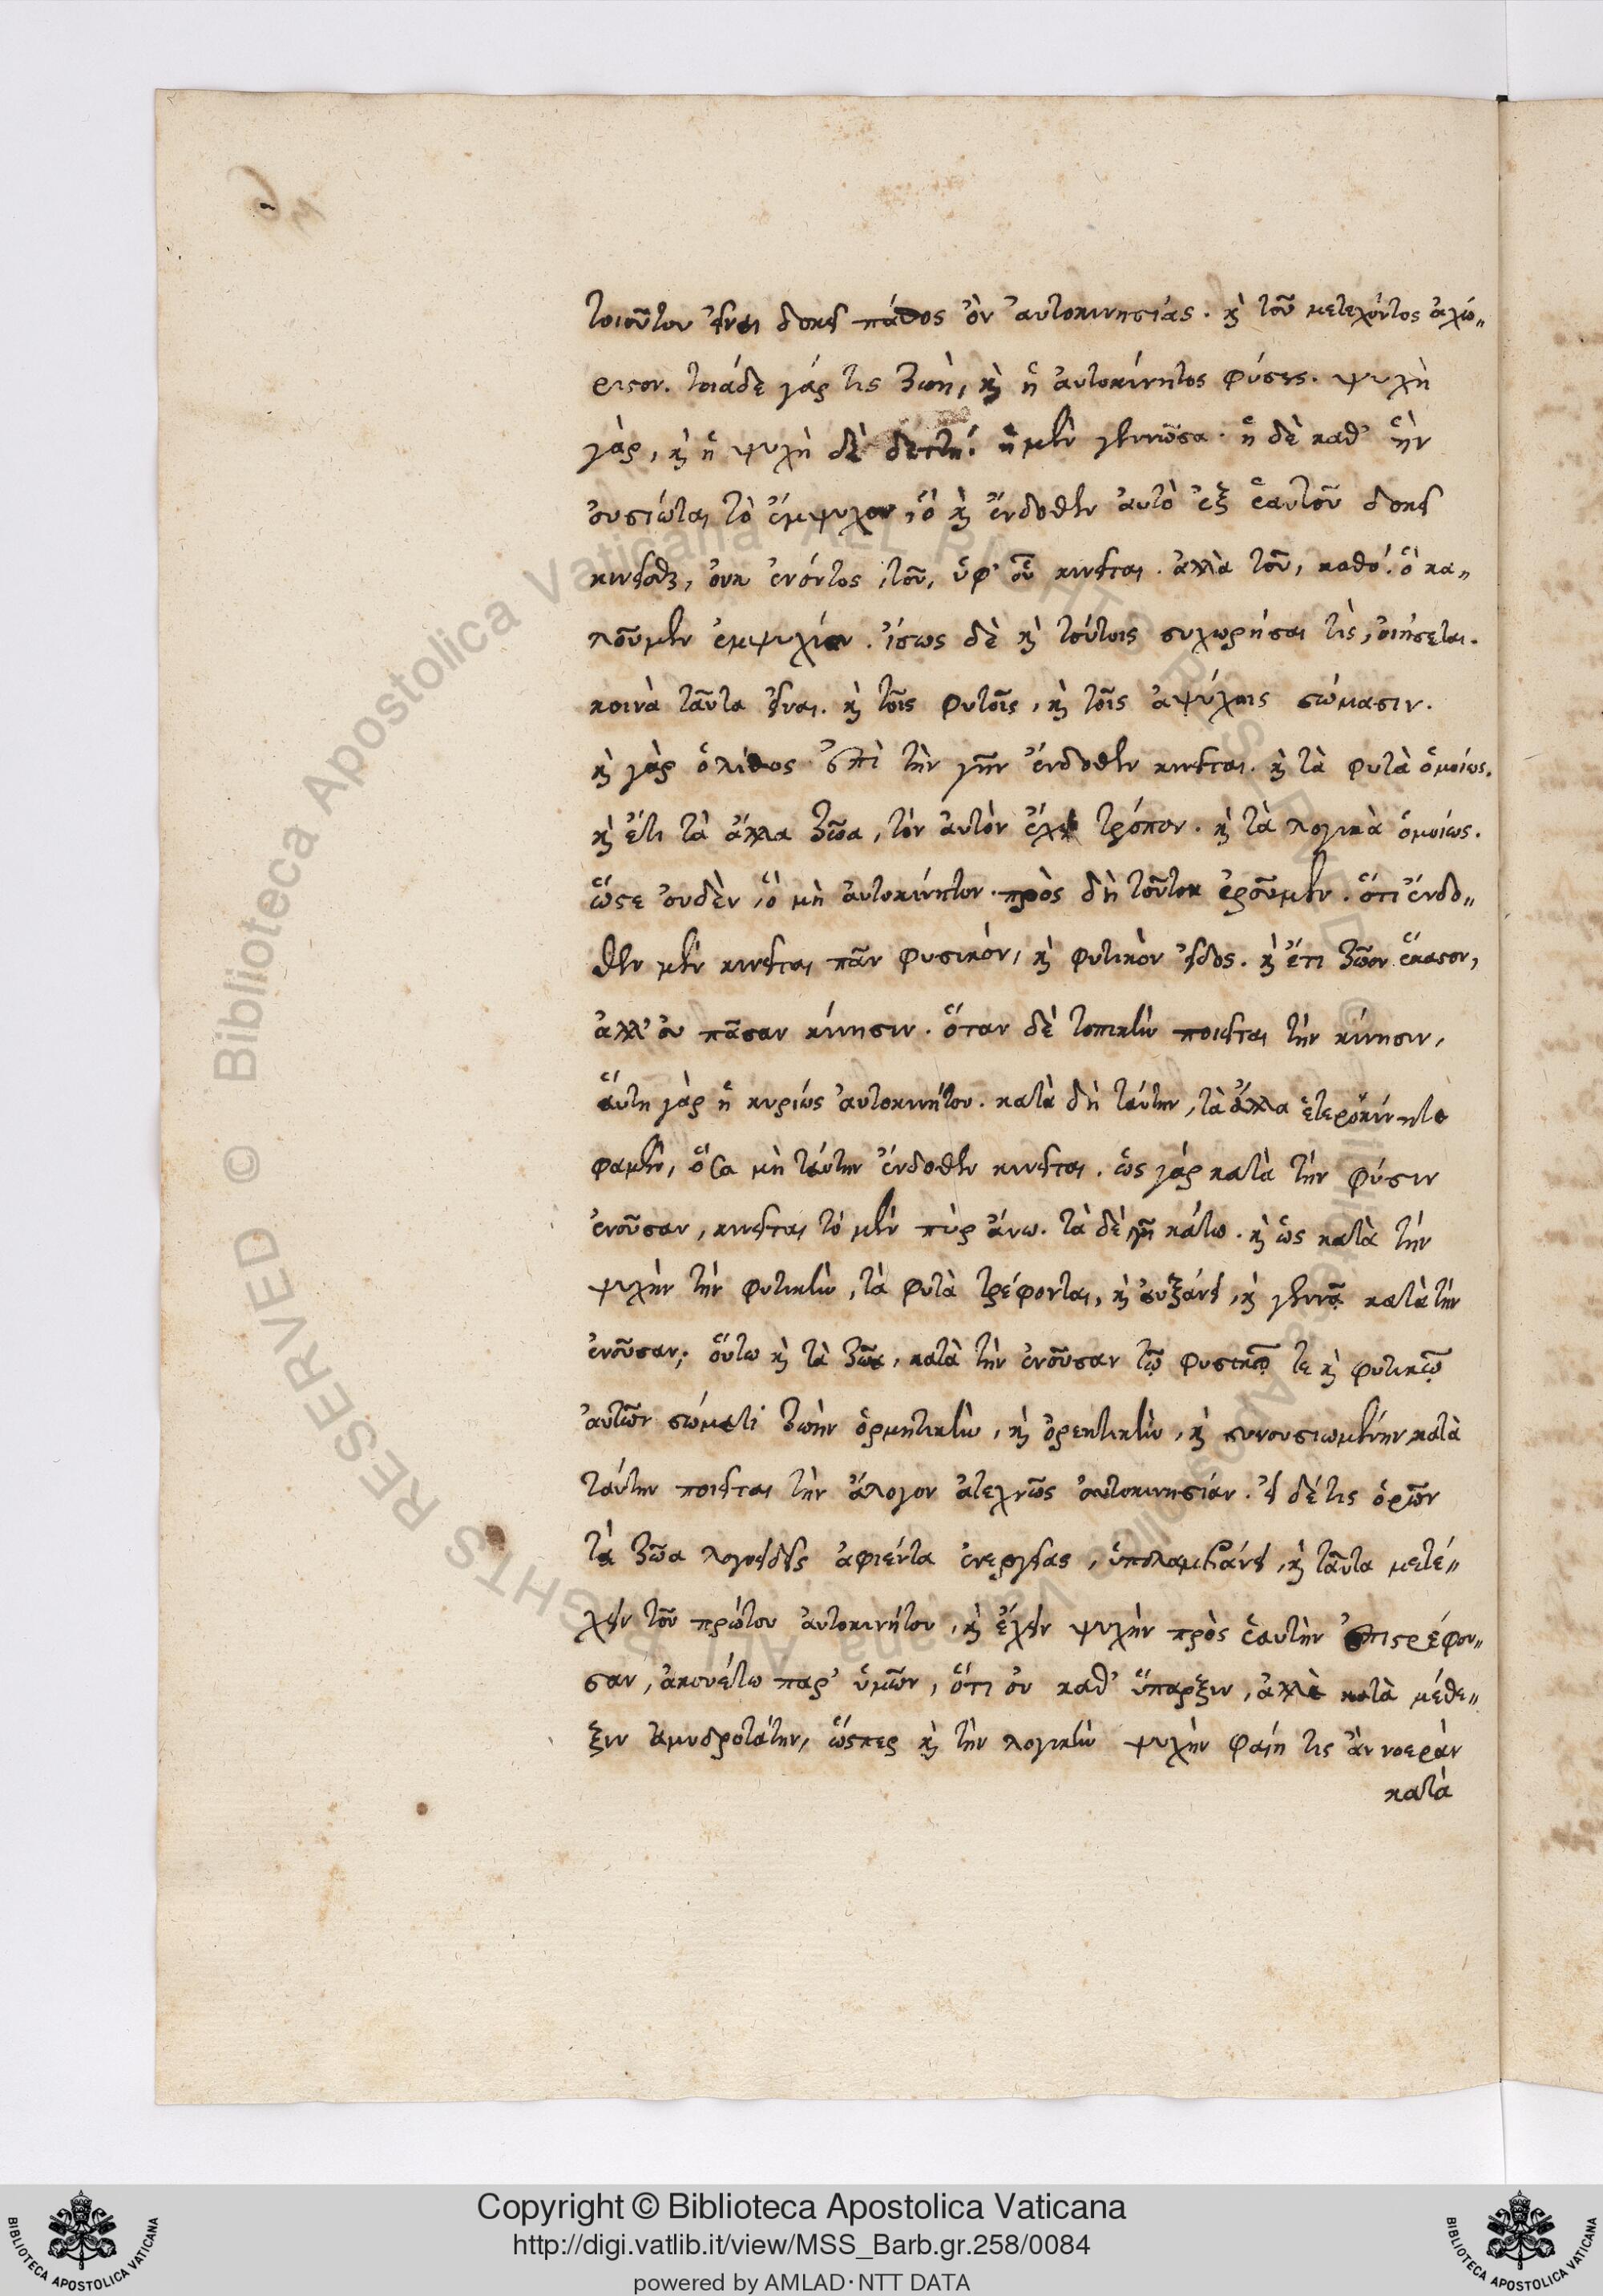 τοιοῦτον εἶναι δοκεῖ πάθος ὂν αὐτοκινησίας. κὶ τοῦ μετεχόντος ἀχώ„
ριστον. τοιάδε γάρ τις ζωὴ, κὶ ἡ αὐτοκίνητος φύσις. ψυχὴ
γὰρ, κὶ ἡ ψυχὴ δὲ διττή: ἡ μὲν γεννῶσα. ἡ δὲ καθ' ἣν
οὐσιώται τὸ ἔμψυχον, ὃ κὶ ἔνδοθεν αὐτὸ ἐξ ἑαυτοῦ δοκεῖ
κινεῖσθαι, οὐκ ἐνόντος, τοῦ, ὑφ' οὗ κινεῖται. ἀλλὰ τοῦ, καθό: ὃ κα„
λοῦμεν ἐμψυχίαν. ἴσως δὲ κὶ τούτοις συχωρήσαι τὶς, οἰήσεται.
κοινὰ ταῦτα εἶναι. κὶ τοῖς φυτοῖς, κὶ τοῖς ἀψύχοις σώμασιν.
κὶ γὰρ ὁ λίθος ἐπὶ τὴν γῆν ἔνδοθεν κινεῖται. κὶ τὰ φυτὰ ὁμοίως.
κὶ ἔτι τὰ ἄλλα ζῶα, τὸν αὐτὸν ἔχει τρόπον. κὶ τὰ λογικὰ ὁμοίως.
ὥστε οὐδὲν, ὃ μὴ αὐτοκίνητον. πρὸς δὴ τοῦτον ἐροῦμεν. ὅτι ἔνδο„
θεν μὲν κινεῖται πᾶν φυσικόν, κὶ φυτικὸν εἶδος. κὶ ἔτι ζῶον ἕκαστον,
ἀλλ' οὐ πᾶσαν κίνησιν. ὅταν δὲ τοπικὴν ποιεῖται τὴν κίνησιν,
αὕτη γὰρ ἡ κυρίως αὐτοκινήτου. κατὰ δὴ ταύτην, τὰ ἄλλα ἑτεροκίνητα
φαμὲν, ὅσα μὴ ταύτην ἔνδοθεν κινεῖται. ὡς γάρ κατὰ τὴν φύσιν
ἐνοῦσαν, κινεῖται τὸ μὲν πὺρ ἄνω. τὰ δὲ γῆ κάτω. κὶ ὡς κατὰ τὴν
ψυχὴν τὴν φυτικὴν, τὰ φυτὰ τρέφονται, κὶ αὐξάνει, κὶ γεννᾷ κατὰ τὴν
ἐνοῦσαν; οὕτω κὶ τὰ ζῶα, κατὰ τὴν ἐνοῦσαν τῷ φυσικῷ τε κὶ φυτικῷ
αὐτῶν σώματι ζωὴν ὁρμητικὴν, κὶ ὀρεκτικὴν, κὶ συνουσιωμένην κατὰ
ταύτην ποιεῖται τὴν ἄλογον ἀτεχνῶς αὐτοκινησίαν. εἰ δέ τις ὁρῶν
τὰ ζῶα λογοειδεῖς ἀφιέντα ἐνεργείας, ὑπολαμβάνει, κὶ ταῦτα μετέ„
χειν τοῦ πρώτου αὐτοκινήτου, κὶ ἔχειν ψυχὴν πρὸς ἑαυτὴν ἐπιστρέφου„
σαν, ἀκουέτω παρ' ὑμῶν, ὅτι οὐ καθ' ὕπαρξιν, ἀλλὰ κατὰ μέθε„
ξιν ἀμυδροτάτην, ὥσπερ κὶ τὴν λογικὴν ψυχὴν φαίη τις ἂν νοερὰν
κατὰ
Copyright © Biblioteca Apostolica Vaticana
http://digi.vatlib.it/view/MSS_Barb.gr.258/0084
powered by AMLAD·NTT DATA